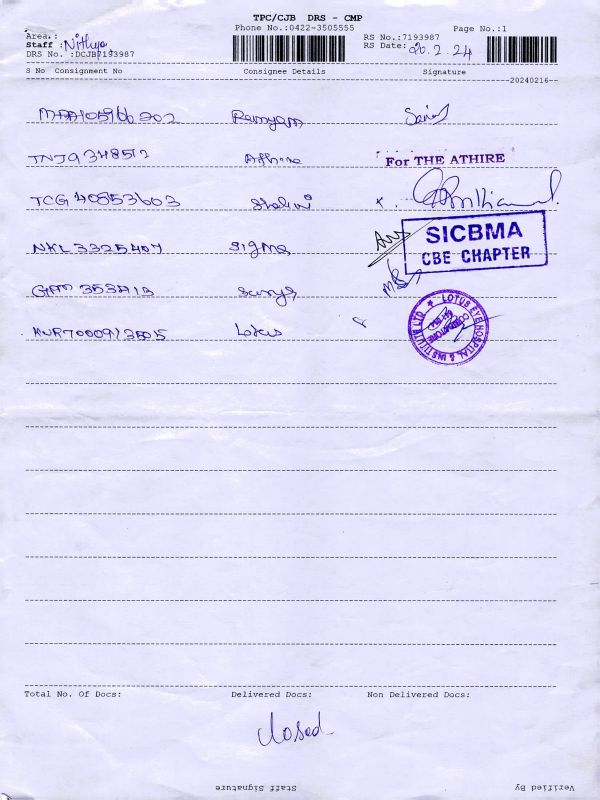 TPC/CJB DRS - CMP
Area.: Phone No.:0422-3505555 RS No.:7193987 Page No.:1
Staff :Nithya RS Date: 20.2.24
DRS No. :DCJB7193987
S No Consignment No Consignee Details Signature
20240216
Ramyam
TNJ9348512 Athire For THE ATHIRE
TCG40853603 Shalini x
NKL3325407 Sigma SICBMA
CBE CHAPTER
Surya
Lotus LOTUS EYE HOSPITAL & INSTITUTE LTD
COIMBATORE
Total No. Of Docs: Delivered Docs: Non Delivered Docs:
closed
Staff Signature Verified By